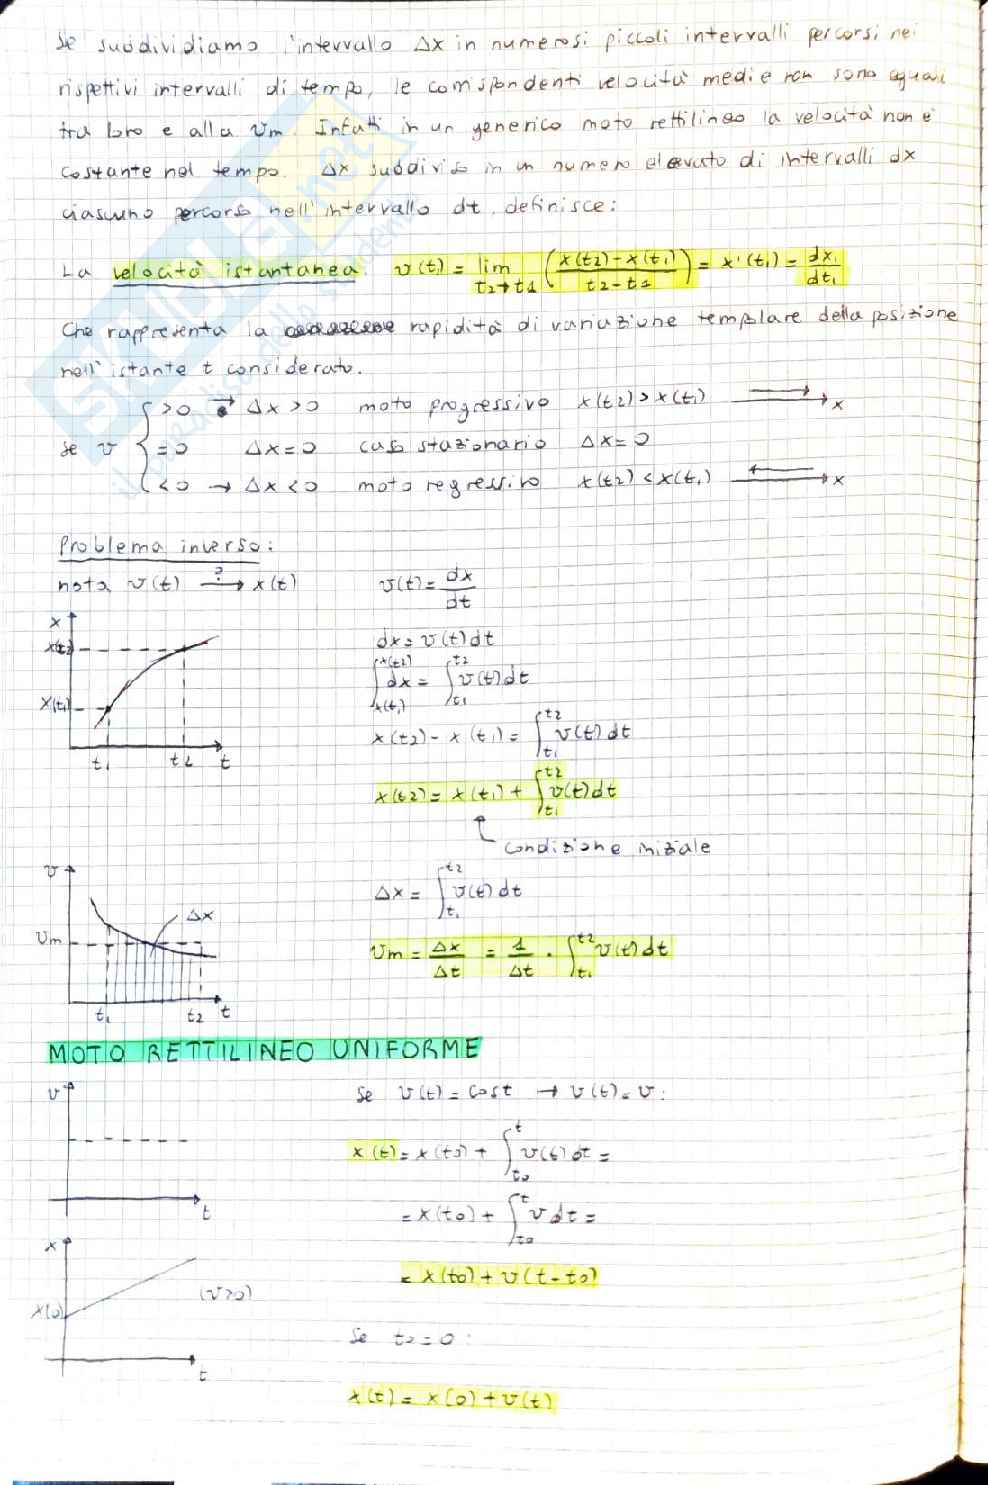 Se suddividiamo l'intervallo Δx in numerosi piccoli intervalli percorsi nei
rispettivi intervalli di tempo, le corrispondenti velocità medie non sono uguali
tra loro e alla vm. Infatti in un generico moto rettilineo la velocità non è
costante nel tempo. Δx suddiviso in un numero elevato di intervalli dx
ciascuno percorso nell'intervallo dt, definisce:
La velocità istantanea: v(t1) = lim t2→t1 ( (x(t2)-x(t1)) / (t2-t1) ) = x'(t1) = dx1/dt1
Che rappresenta la rapidità di variazione temporale della posizione
nell'istante t considerato.
>0 → Δx>0 moto progressivo x(t2)>x(t1) x
se v =0 Δx=0 caso stazionario Δx=0
<0 → Δx<0 moto regressivo x(t2)<x(t1) x
Problema inverso:
nota v(t) ?→ x(t) v(t) = dx/dt
x
x(t2) dx = v(t)dt
∫x(t1)x(t2) dx = ∫t1t2 v(t)dt
x(t1)
x(t2) - x(t1) = ∫t1t2 v(t)dt
t1 t2 t
x(t2) = x(t1) + ∫t1t2 v(t)dt
condizione iniziale
v
Δx = ∫t1t2 v(t)dt
Δx
vm
vm = Δx/Δt = 1/Δt · ∫t1t2 v(t)dt
t1 t2 t
MOTO RETTILINEO UNIFORME
v Se v(t) = cost → v(t) = v:
x(t) = x(t0) + ∫t0t v(t)dt =
t = x(t0) + ∫t0t v dt =
x
= x(t0) + v(t-t0)
(v>0)
x(0)
Se t0=0:
t
x(t) = x(0) + v(t)
SKUOLA.net
il paradiso dello studente